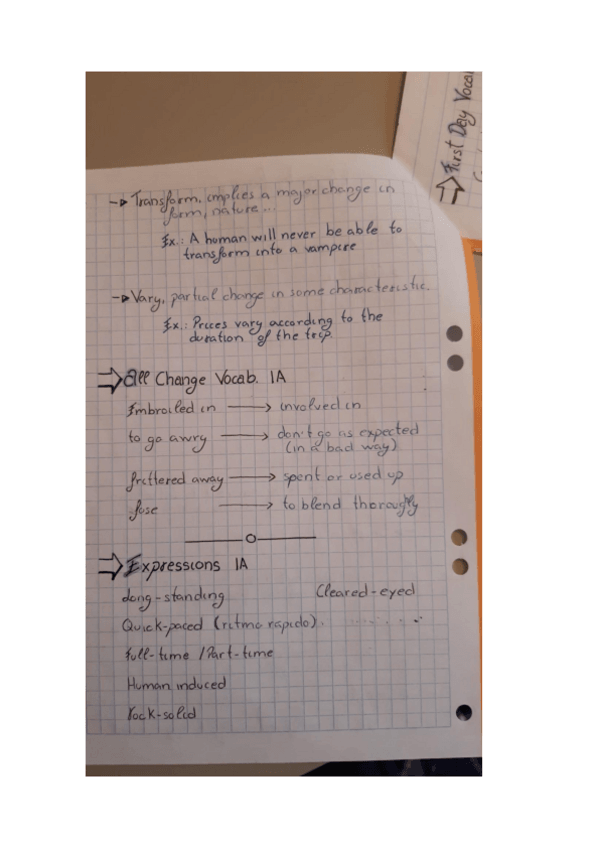 First Day Vocal
-> Transform, implies a major change in
form, nature...
Ex.: A human will never be able to
transform into a vampire
-> Vary, partial change in some characteristic.
Ex.: Prices vary according to the
duration of the trip.
⇒ All Change Vocab. 1A
Embroiled in → involved in
to go awry → don't go as expected
(in a bad way)
frittered away → spent or used up
fuse → to blend thorougly
Expressions 1A
long-standing Cleared-eyed
Quick-paced (ritmo rápido).
Full-time / Part-time
Human induced
rock-solid